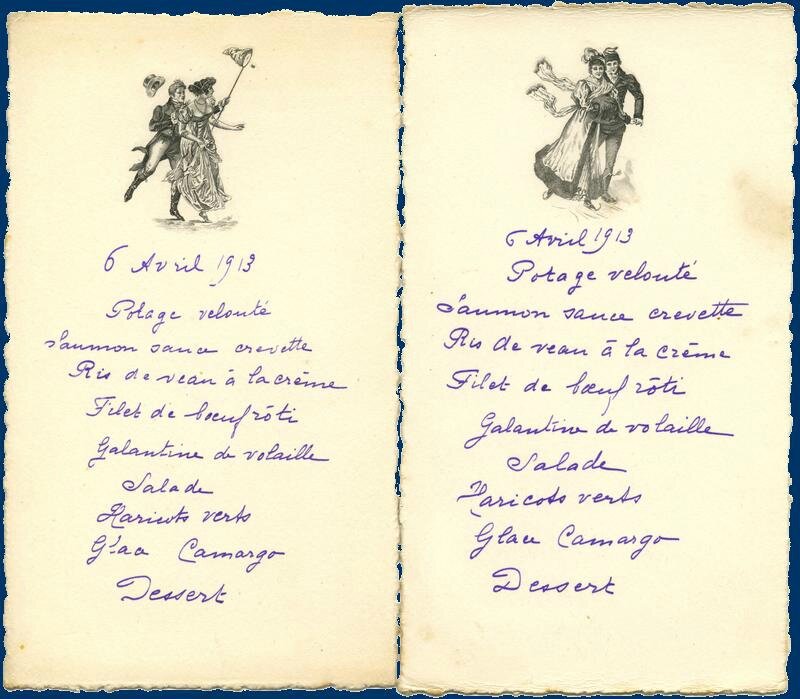 6 Avril 1913
Potage velouté
Saumon sauce crevette
Ris de veau à la crème
Filet de bœuf rôti
Galantine de volaille
Salade
Haricots verts
Glace Camargo
Dessert
6 Avril 1913
Potage velouté
Saumon sauce crevette
Ris de veau à la crème
Filet de bœuf rôti
Galantine de volaille
Salade
Haricots verts
Glace Camargo
Dessert